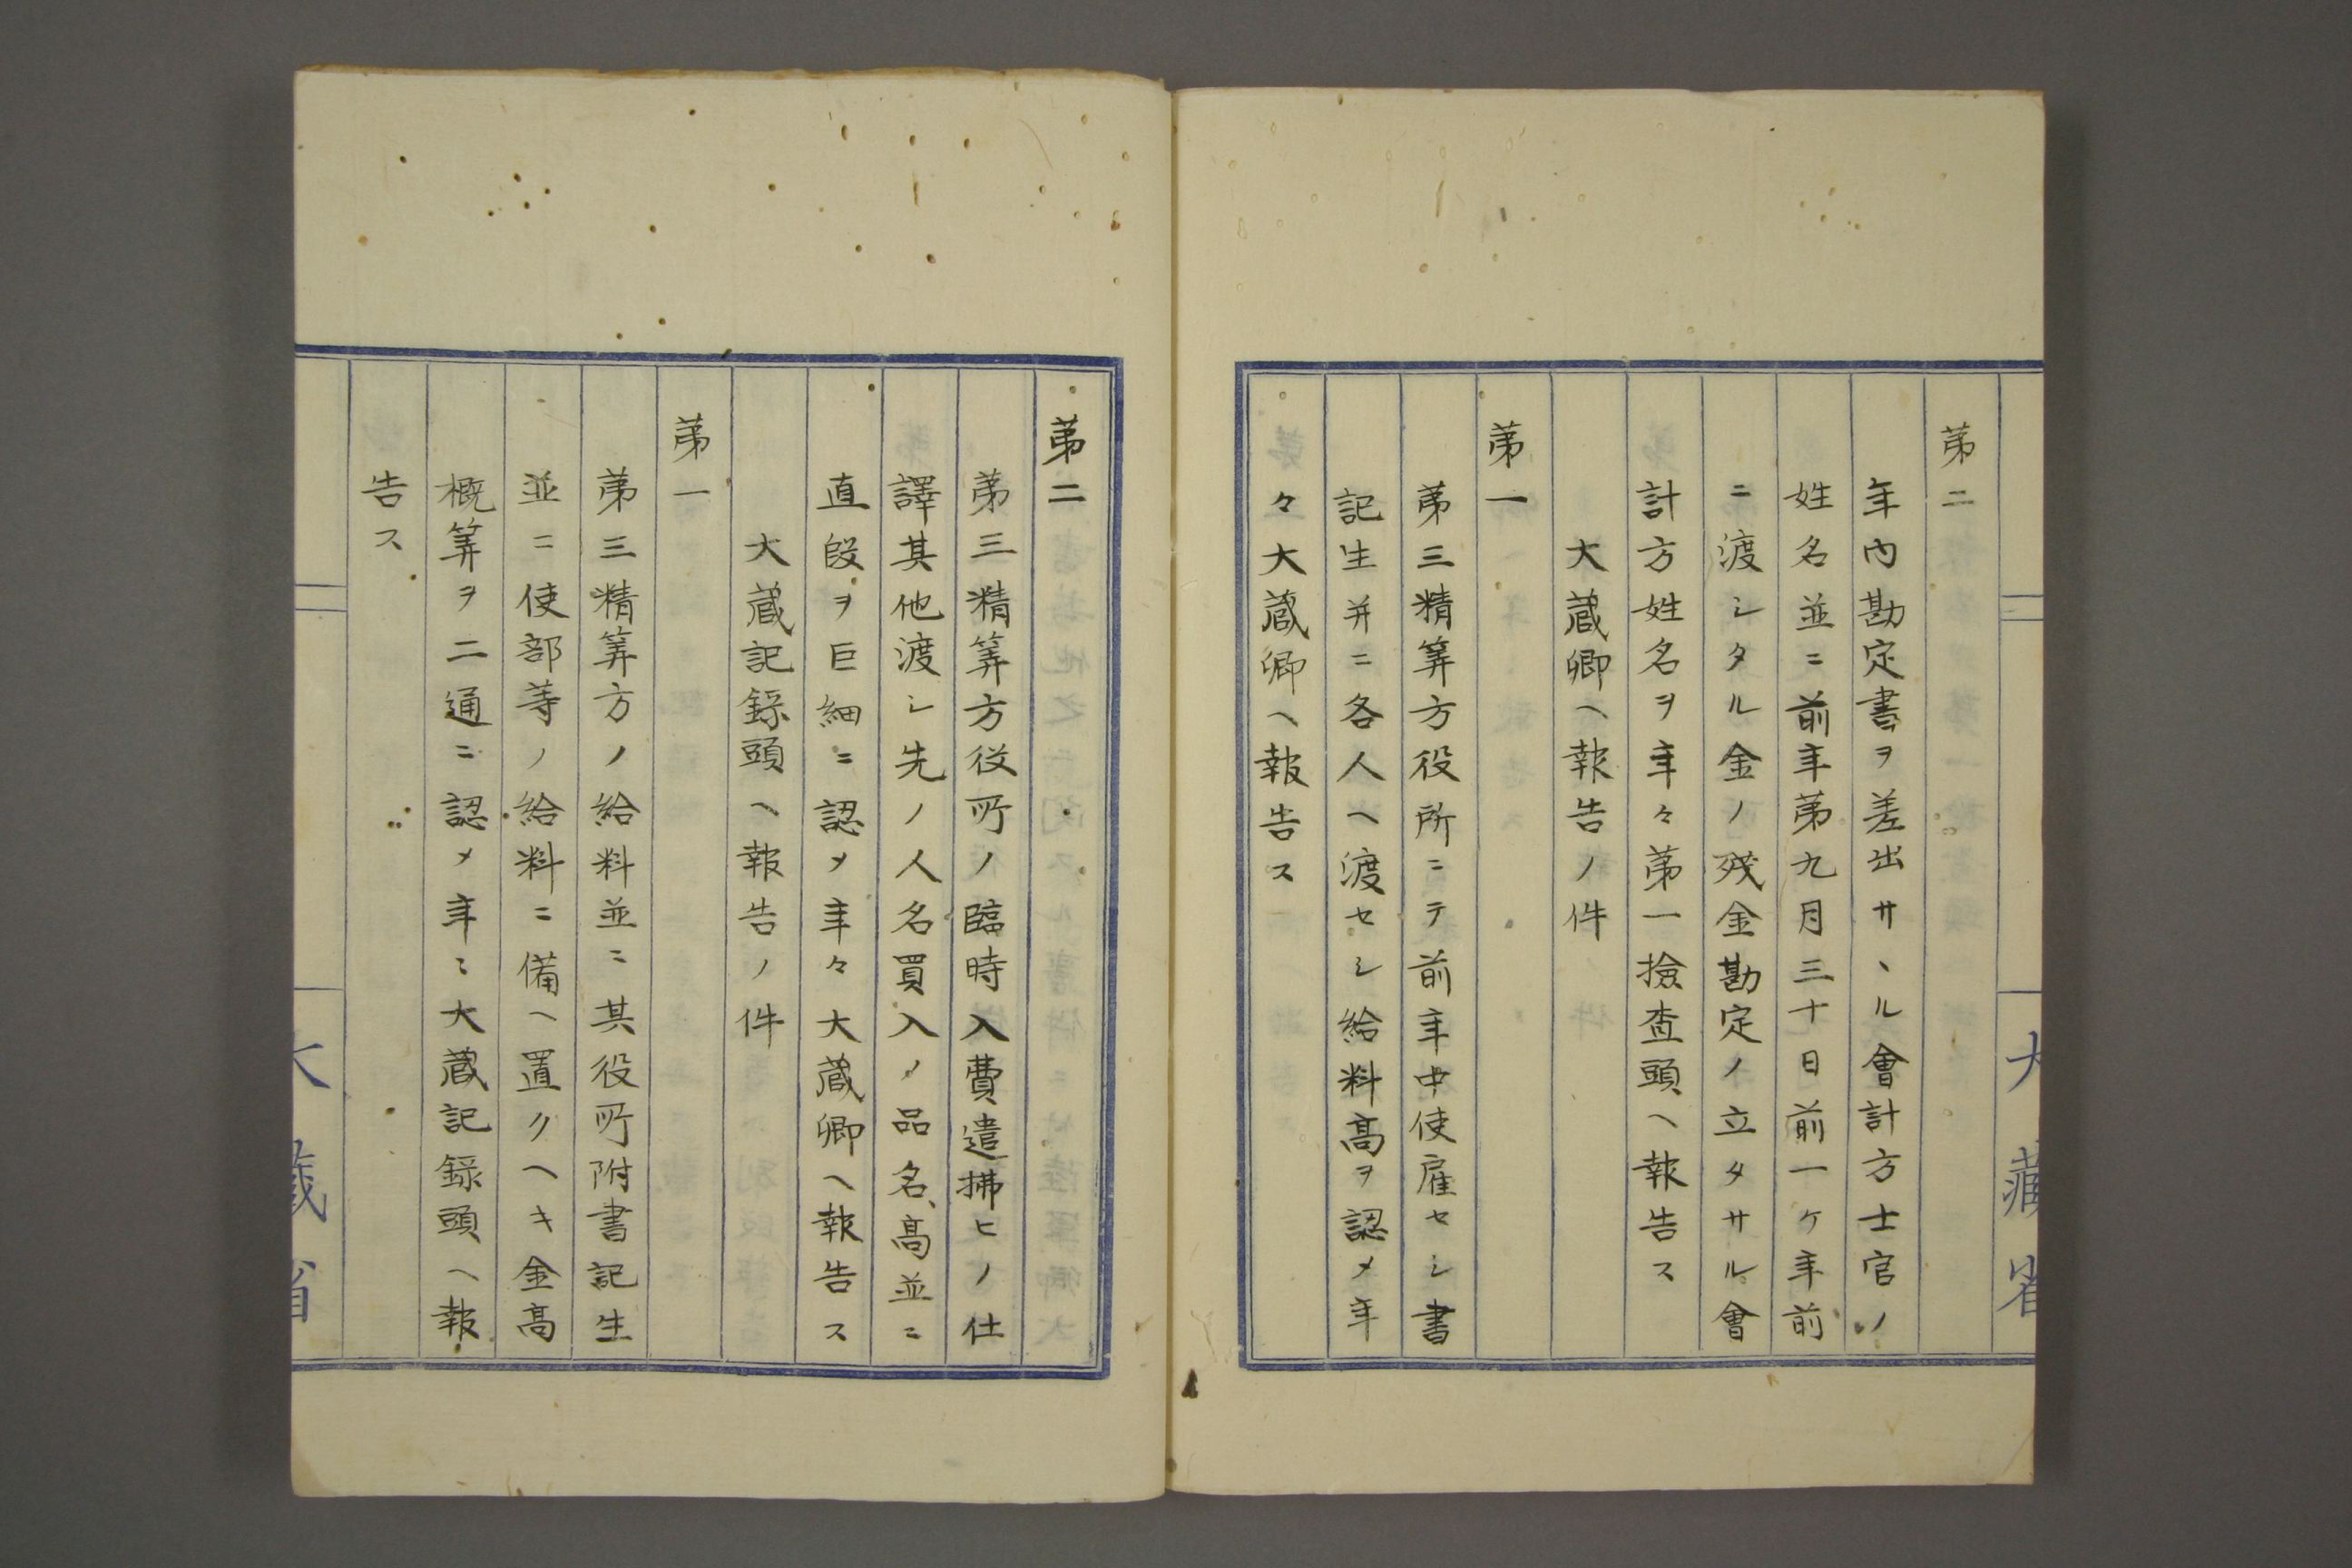 大藏省
第二
年內勘定書ヲ差出サヽル會計方士官ノ
姓名並ニ前年第九月三十日前一ケ年前
ニ渡シタル金ノ残金勘定ノ立タサル會
計方姓名ヲ年々第一撿査頭ヘ報告ス
大蔵卿ヘ報告ノ件
第一
第三精筭方役所ニテ前年中使雇セシ書
記生并ニ各人ヘ渡セシ給料高ヲ認メ年
々大蔵卿ヘ報告ス
第二
第三精筭方役所ノ臨時入費遣拂ヒノ仕
譯其他渡シ先ノ人名買入ノ品名、高並ニ
直段ヲ巨細ニ認メ年々大蔵卿ヘ報告ス
大蔵記録頭ヘ報告ノ件
第一
第三精筭方ノ給料並ニ其役所附書記生
並ニ使部等ノ給料ニ備ヘ置クヘキ金高
概筭ヲ二通ニ認メ年々大蔵記録頭ヘ報
告ス
大藏省